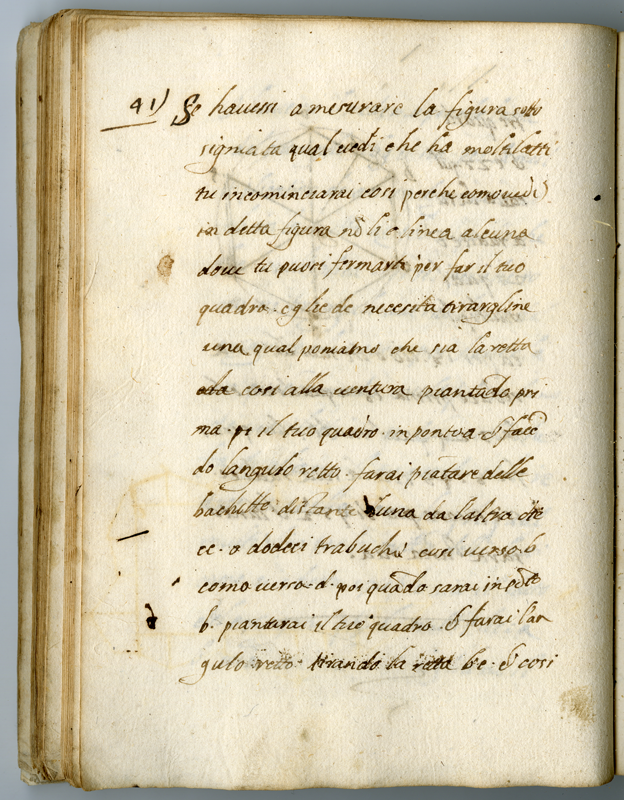 41) Se havessi a mesurare la figura sotto
signiata qual vedi che ha molti latti
tu incominciarai cosi perche como vedi
in detta figura nō li e linea alcuna
dove tu puosi fermarti per far il tuo
quadro. eglie de necesita tirargline
una qual poniamo che sia la retta
cosi alla ventura piantādo pri
ma il tuo quadro. in ponto a & facē
do langulo retto. farai piātare delle
bachette. distante luna da laltra
o dodeci trabuchi cosi verso. b
como verso. d. poi quādo sarai in pōto
b. piantarai il tuo quadro. & farai lan
gulo retto. tirando la retta be. & cosi